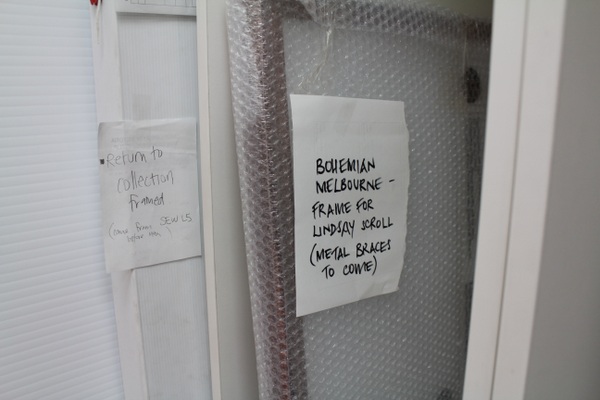 Return to
collection
framed
(came from SEWLS
before
BOHEMIAN
MELBOURNE -
FRAME FOR
LINDSAY SCROLL
(METAL BRACES
TO COME)